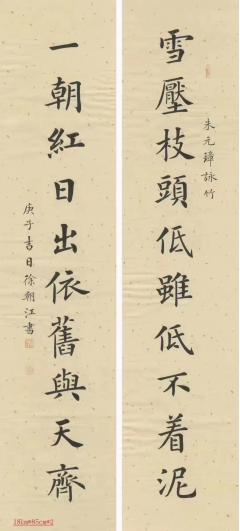 朱元璋詠竹
雪壓枝頭低雖低不着泥
一朝紅日出依舊與天齊
庚子吉日徐朝江書
18cm*85cm*2